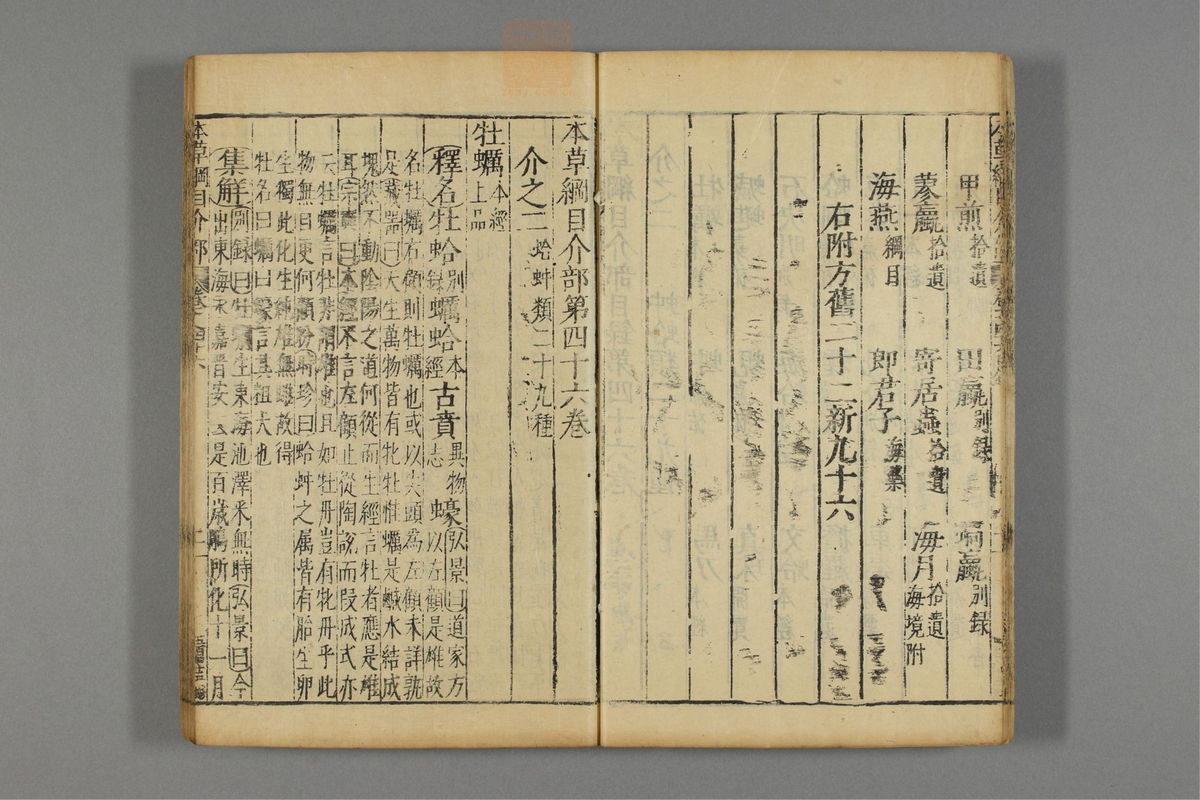 甲煎拾遺 田蠃別錄 蝸蠃別錄
蓼蠃拾遺 寄居蟲拾遺 海月拾遺海境附
海燕綱目 郎君子海藥
右附方舊二十二新九十六
本草綱目介部第四十六卷
介之二 蛤蚌類二十九種
牡蠣本經上品
釋名牡蛤別錄蠣蛤本經古賁異物志蠔弘景曰道家方以左顧是雄故
名牡蠣右顧則牡蠣也或以尖頭為左顧未詳孰
是藏器曰天生萬物皆有牝牡惟蠣是鹹水結成
塊然不動陰陽之道何從而生經言牡者應是雄
耳宗奭曰本經不言左顧止從陶說而段成式亦
云牡蠣言牡非謂雄也且如牡丹豈有牝丹乎此
物無目更何顧盼時珍曰蛤蚌之属皆有胎生卵
生獨此化生純雄無雌故得
牡名曰蠣曰蠔言其粗大也
集解別録曰牡蠣生東海池澤采無時弘景曰今
出東海永嘉晋安云是百歲鵰所化十一月
本草綱目介部 卷四十六